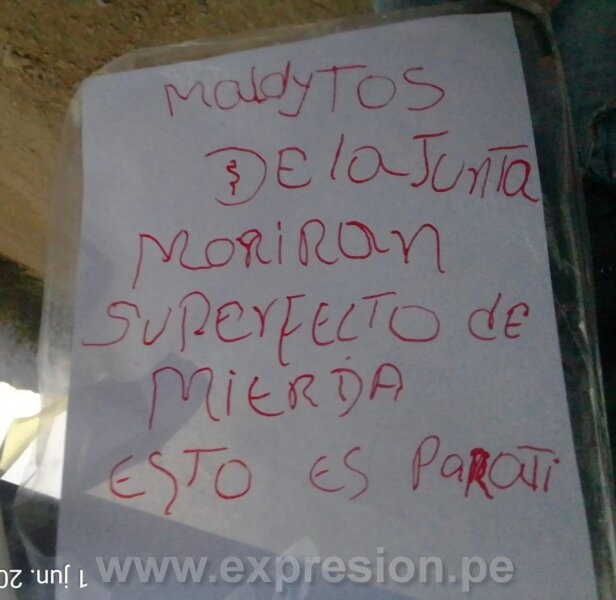 MaldyTOS
DE la JunTa
MORiRan
SUPerFECTO dE
MiERDA
ESTO ES PaRaTi
www.expresion.pe
1 jun. 20